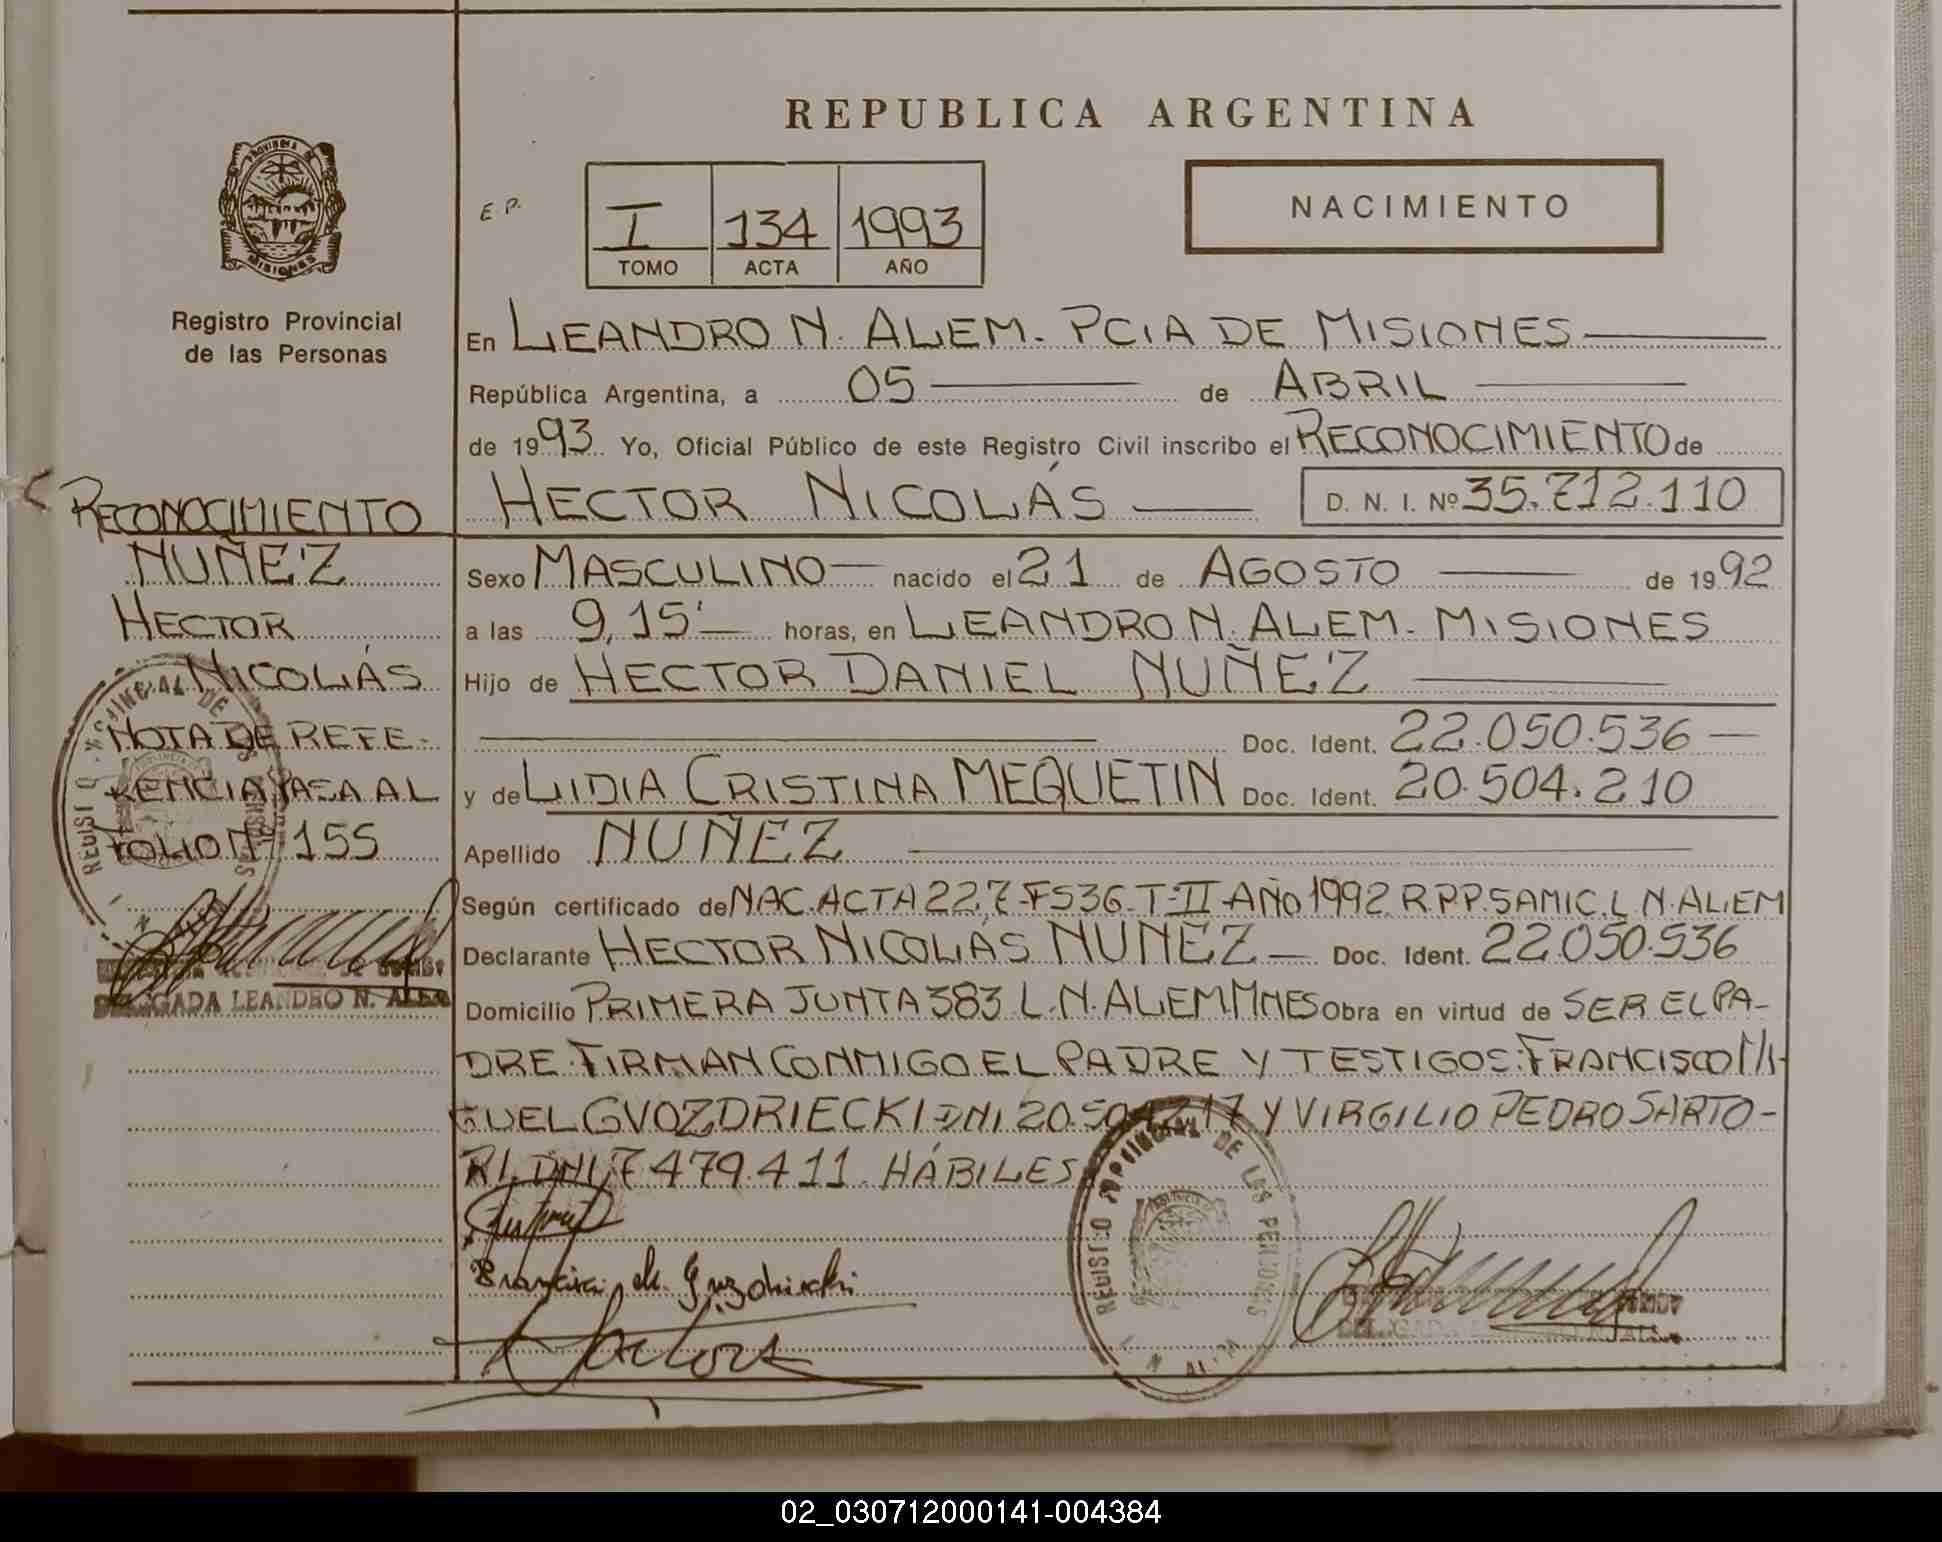 REPUBLICA ARGENTINA
PROVINCIA DE
MISIONES
Registro Provincial
de las Personas
E.P.
I 134 1993
TOMO ACTA AÑO
NACIMIENTO
En LEANDRO N. ALEM. PCIA DE MISIONES
República Argentina, a 05 de ABRIL
de 1993 Yo, Oficial Público de este Registro Civil inscribo el RECONOCIMIENTO de
HECTOR NICOLÁS D. N. I. Nº 35.712.110
Sexo MASCULINO nacido el 21 de AGOSTO de 1992
a las 9,15' horas, en LEANDRO N. ALEM. MISIONES
Hijo de HECTOR DANIEL NUÑEZ
Doc. Ident. 22.050.536
y de LIDIA CRISTINA MEQUETIN Doc. Ident. 20.504.210
Apellido NUÑEZ
Según certificado de NAC. ACTA 227-F536-T-II-AÑO 1992. R.P.P. SAMIC. L.N. ALEM
Declarante HECTOR NICOLÁS NUÑEZ Doc. Ident. 22.050.536
Domicilio PRIMERA JUNTA 383 L.N. ALEM. MNES Obra en virtud de SER EL PA-
DRE. FIRMAN CONMIGO EL PADRE Y TESTIGOS: FRANCISCO MI-
GUEL GVOZDRIECKI DNI 20.504.217 Y VIRGILIO PEDRO SARTO-
RI. DNI 7.479.411. HÁBILES
RECONOCIMIENTO
NUÑEZ
HECTOR
NICOLÁS
NOTA DE REFE-
RENCIA PASA AL
FOLIO Nº 155
DELEGADA LEANDRO N. ALEM
REGISTRO PROVINCIAL DE LAS PERSONAS
L. N. ALEM
02_030712000141-004384